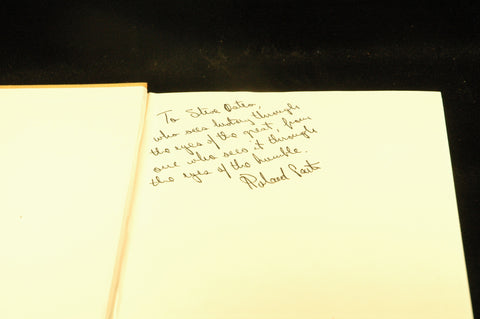 To Steve Oates,
who sees history through
the eyes of the great, from
one who sees it through
the eyes of the humble.
Roland Sarti